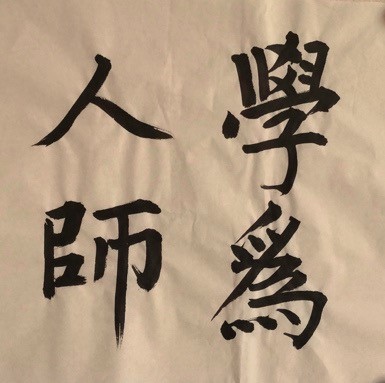 學爲
人師